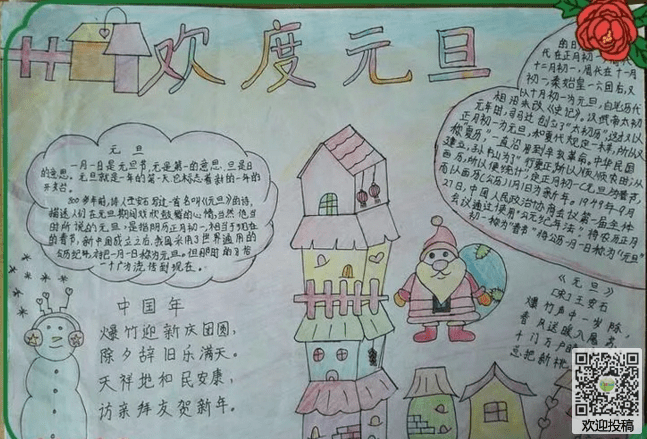 欢度元旦
元旦
一月一日是元旦节,元是第一的意思,旦是日
的意思。元旦就是一年的第一天,它标志着新的一年的
开始。
描述人们在元旦期间欢欣鼓舞的心情,当然他当
时所说的元旦,是指阴历正月初一,相当于现在
的春节,新中国成立之后,我国采用了世界通用的
公历纪年,才把一月一日称为元旦。但那时的
中国年
爆竹迎新庆团圆,
除夕辞旧乐满天。
天祥地和民安康,
访亲拜友贺新年。
代在正月初一,
十二月初一,周代在十一月
初一,秦始皇一六国后,又
以十月初一为元旦,自此历代
相沿未改《史记》。汉武帝太初
元年时,司马迁创立了“太初历”,这才又以
正月初一为元旦,和夏代规定一样,所以又
称“夏历”,一直沿用到辛亥革命。中华民国
建立,孙中山为了“行夏正,所以顺农时;从
西历,所以便统计”,定正月初一
1949年9月
27日,中国人民政治协商会议第一届全体
会议通过使用“公元纪年法”,
初一称为“春节”,
《元旦》
[宋]王安石
爆竹声中一岁除
春风送暖入屠苏
千门万户
总把新桃
欢迎投稿